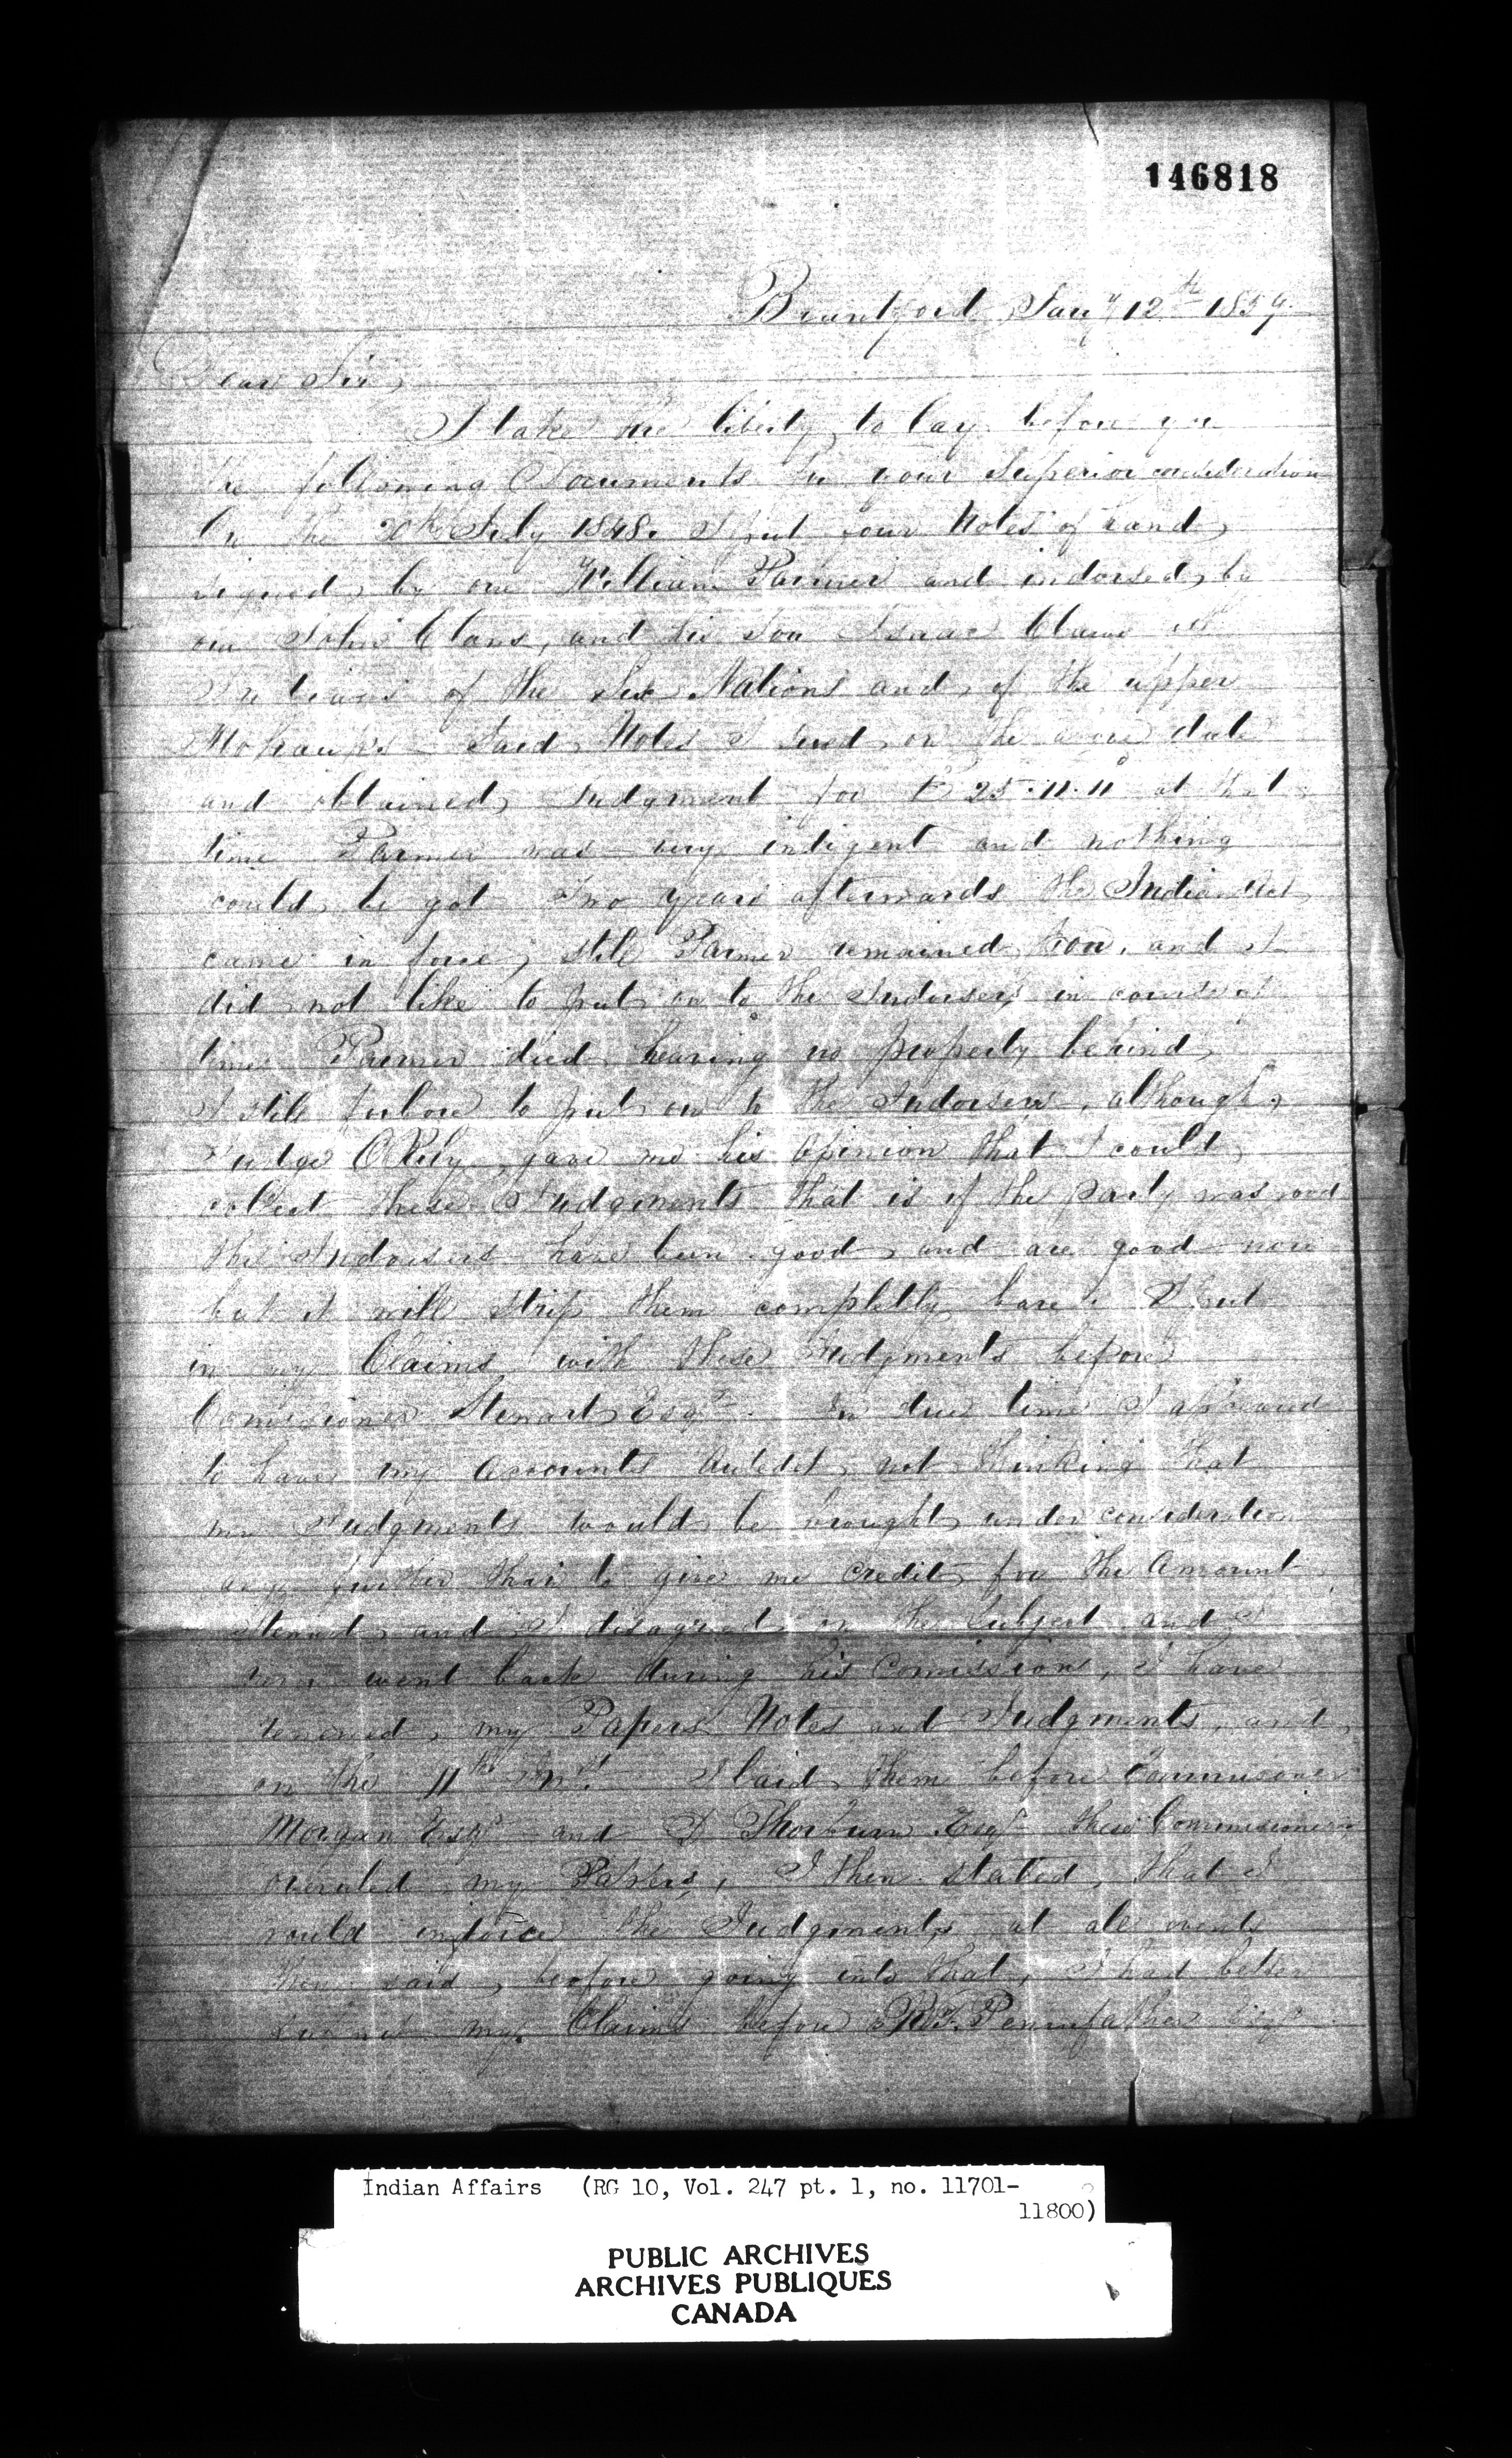 146818
Brantford Jany 12th 1859.
Dear Sir,
I take the liberty to lay before you
the following Documents for your Superior consideration
On the 20th July 1848. I put four Notes of hand,
signed, by one William Parmer and indorsed, by
one John Claus, and his Son Isaac Claus all
Indians of the Six Nations and, of the upper
Mohawks - Said, Notes I sued, on the above date
and obtained, Judgment for £ 25.11.11 at that
time Parmer was very indigent and nothing
could, be got Two years afterwards the Indian Act
came in force, still Parmer remained, poor, and I
did, not like to put on to the Indorsers, in course of
time Parmer died, leaving no property behind,
I still forbore to put on to the Indorsers, although,
Judge ORily, gave me his Opinion that I could,
collect these Judgments that is if the party was good
the Indorsers have been good, and are good now
but it will strip them completly bare. I put
in my Claims with these Judgments before
Comisioner Stewart, Esqr. In due time I
to have my Accounts Auledit, not thinking that
my Judgments would, be brought, under consideration
any further than to give me Credit, for the Amount
Stewart, and I disagreed, on the Subject and, I
never went back during his Comission, I have
renewed, my Papers Notes and Judgments, and,
on the 11th Inst. I laid, them before Commisioner
Morgan Esqr and D Thorburn Esqr these Commisioners
overuled my Papers, I then stated, that I
would inforce the Judgments, at all events
they said, before going into that, I had better
submit my Claims before R.T. Pennefather Esqr
Indian Affairs (RG 10, Vol. 247 pt. 1, no. 11701-
11800)
PUBLIC ARCHIVES
ARCHIVES PUBLIQUES
CANADA